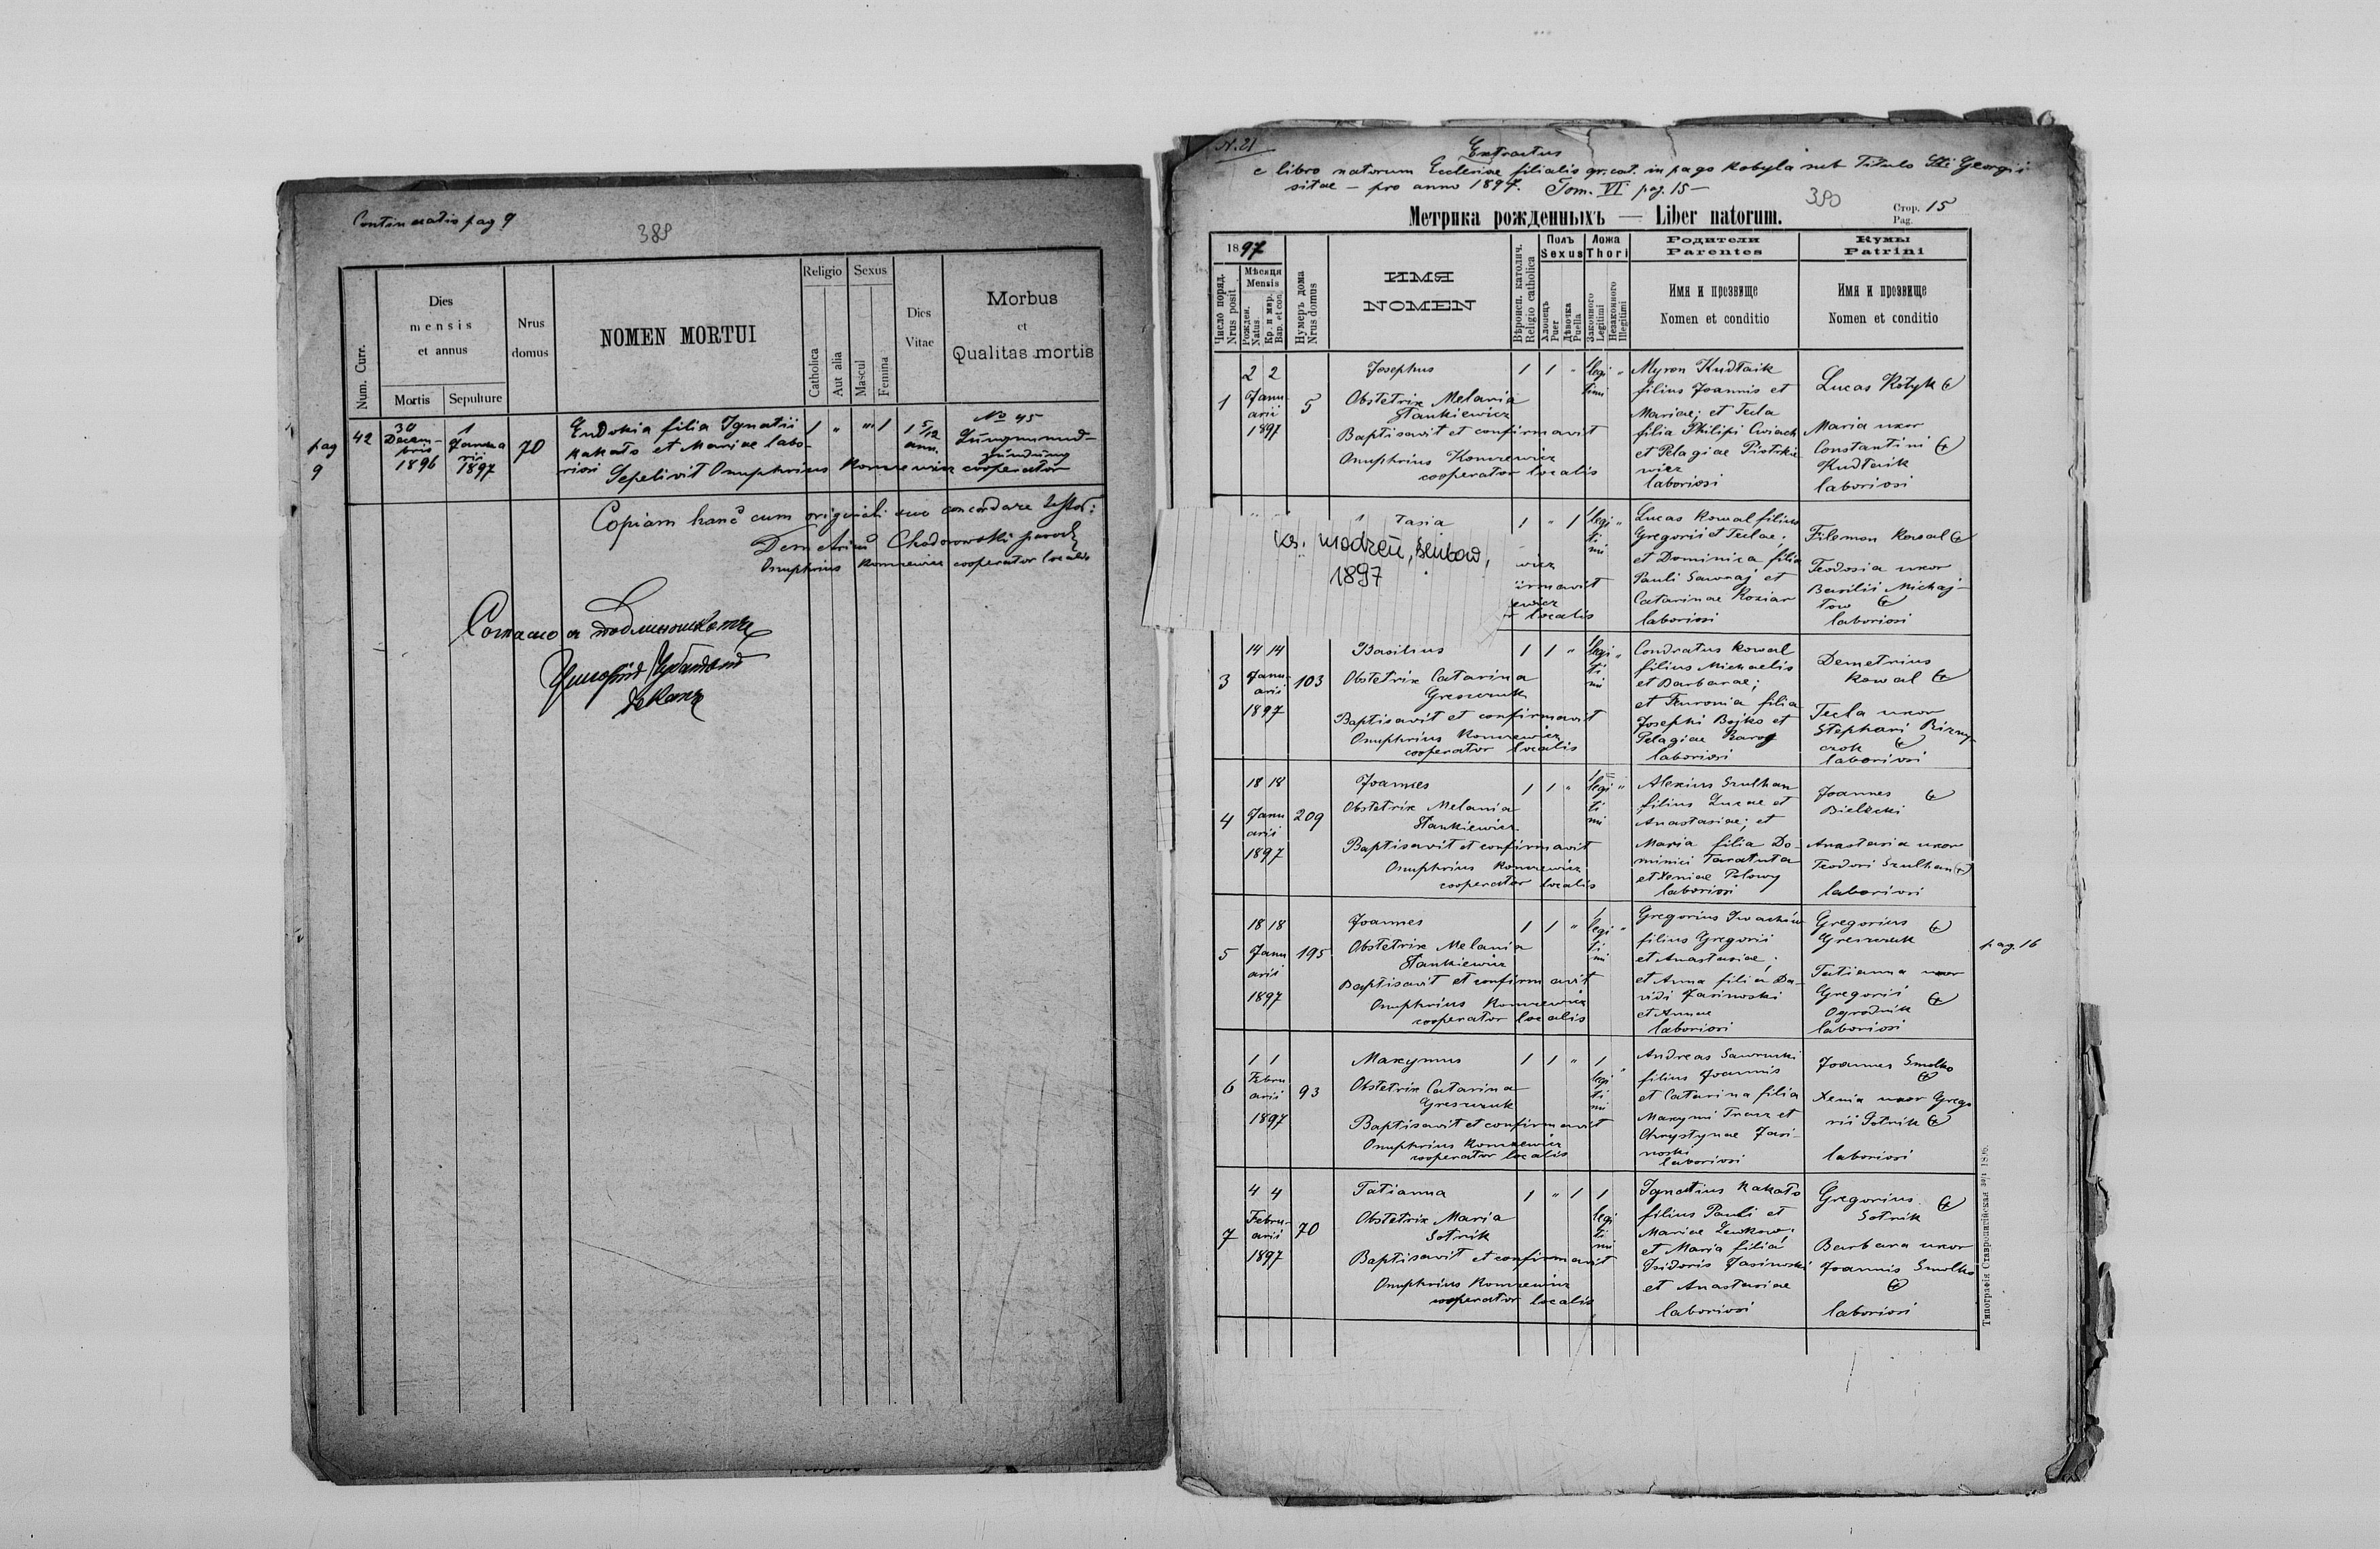 Continuatio pag 9
389
Num. Curr.
Dies
mensis
et annus
Mortis
Sepulture
Nrus
domus
NOMEN MORTUI
Religio
Catholica
Aut alia
Sexus
Mascul
Femina
Dies
Vitae
Morbus
et
Qualitas mortis
pag
9
42
30
Decem-
bris
1896
1
Janua
rii
1897
70
Eudokia filia Ignatii
Kakato et Mariae labo-
riosi Sepelivit Onuphrius Komrewicz cooperator
1 " " 1
1 5/12
ann.
No 45
Copiam hanc cum originali suo concordare testor:
Demetrius Chodorowski paroch
Onuphrius Komrewicz cooperator localis
N. 21
Extractus
e libro natorum Ecclesiae filialis gr. cat. in pago Kobyla sub Titulo Sti Georgii
sitae — pro anno 1897. Tom. VI pag. 15 —
390
Метрика рожденныхъ — Liber natorum.
Стор. 15
Pag.
1897
Число поряд.
Nrus posit
Мѣсяця
Mensis
Рожден.
Natus.
Кр. и мир.
Bap. et con.
Нумеръ дома
Nrus domus
ИМЯ
NOMEN
Вѣроисп. католич.
Religio catholica
Полъ
Sexus
Хлопецъ
Puer
Дѣвочка
Puella
Ложа
Thori
Законного
Legitimi
Незаконного
Illegitimi
Родители
Parentes
Имя и прозвище
Nomen et conditio
Кумы
Patrini
Имя и прозвище
Nomen et conditio
1
2 2
Janu
arii
1897
5
Josephus
Obstetrix Melania
Stankiewicz
Baptisavit et confirmavit
Onuphrius Komrewicz
cooperator localis
1 1 " 1 "
legi
timi
Myron Kudłaik
filius Joannis et
Mariae; et Tecla
filia Philipi Cwiach
et Pelagiae Piotrkie
wicz
laboriosi
Lucas Kotyk
Maria uxor
Constantini
Kudłaik
laboriosi
1897
Tasia
wicz
irmavit
ewicz
r localis
1 " 1 1 "
legi
ti
mi
Lucas Kowal filius
Gregorii et Teclae;
et Dominica filia
Pauli Sawnaj et
Catarinae Koziar
laboriosi
Filemon Kowal
Teodosia uxor
Basilii Michaj-
łow
laboriosi
3
14 14
Janu
arii
1897
103
Basilius
Obstetrix Catarina
Greszczuk
Baptisavit et confirmavit
Onuphrius Komrewicz
cooperator localis
1 1 " 1 "
legi
ti
mi
Condratus Kowal
filius Michaelis
et Barbarae;
et Feuronia filia
Josephi Bojko et
Pelagiae Barog
laboriosi
Demetrius
Kowal
Tecla uxor
Stephani Birny-
czok
laboriosi
4
18 18
Janu
arii
1897
209
Joannes
Obstetrix Melania
Stankiewicz
Baptisavit et confirmavit
Onuphrius Komrewicz
cooperator localis
1 1 " 1 "
legi
ti
mi
Alexius Szulhan
filius Lucae et
Anastasiae; et
Maria filia Do-
minici Taratuta
et Xeniae Polowy
laboriosi
Joannes
Bielecki
Anastasia uxor
Teodori Szulhan
laboriosi
5
18 18
Janu
arii
1897
195
Joannes
Obstetrix Melania
Stankiewicz
Baptisavit et confirmavit
Onuphrius Komrewicz
cooperator localis
1 1 " 1 "
legi
ti
mi
Gregorius Iwachów
filius Gregorii
et Anastasiae;
et Anna filia Da-
vidi Jasinoski
et Annae
laboriosi
Gregorius
Greszczuk
Tatianna uxor
Gregorii
Ogrodnik
laboriosi
pag. 16
6
1 1
Febru
arii
1897
93
Maxymus
Obstetrix Catarina
Greszczuk
Baptisavit et confirmavit
Onuphrius Komrewicz
cooperator localis
1 1 " 1 "
legi
ti
mi
Andreas Sawrucki
filius Joannis
et Catarina filia
Maxymi Tracz et
Chrystynae Jasi-
noski
laboriosi
Joannes Smolko
Xenia uxor Grego
rii Sotnik
laboriosi
7
4 4
Febru-
arii
1897
70
Tatianna
Obstetrix Maria
Sotnik
Baptisavit et confirmavit
Onuphrius Komrewicz
cooperator localis
1 " 1 1
legi
ti
mi
Ignatius Kakato
filius Pauli et
Mariae Lewkow;
et Maria filia
Isidoris Jasinoski
et Anastasiae
laboriosi
Gregorius
Sotnik
Barbara uxor
Joannis Smolko
laboriosi
Типографія Ставропигійская